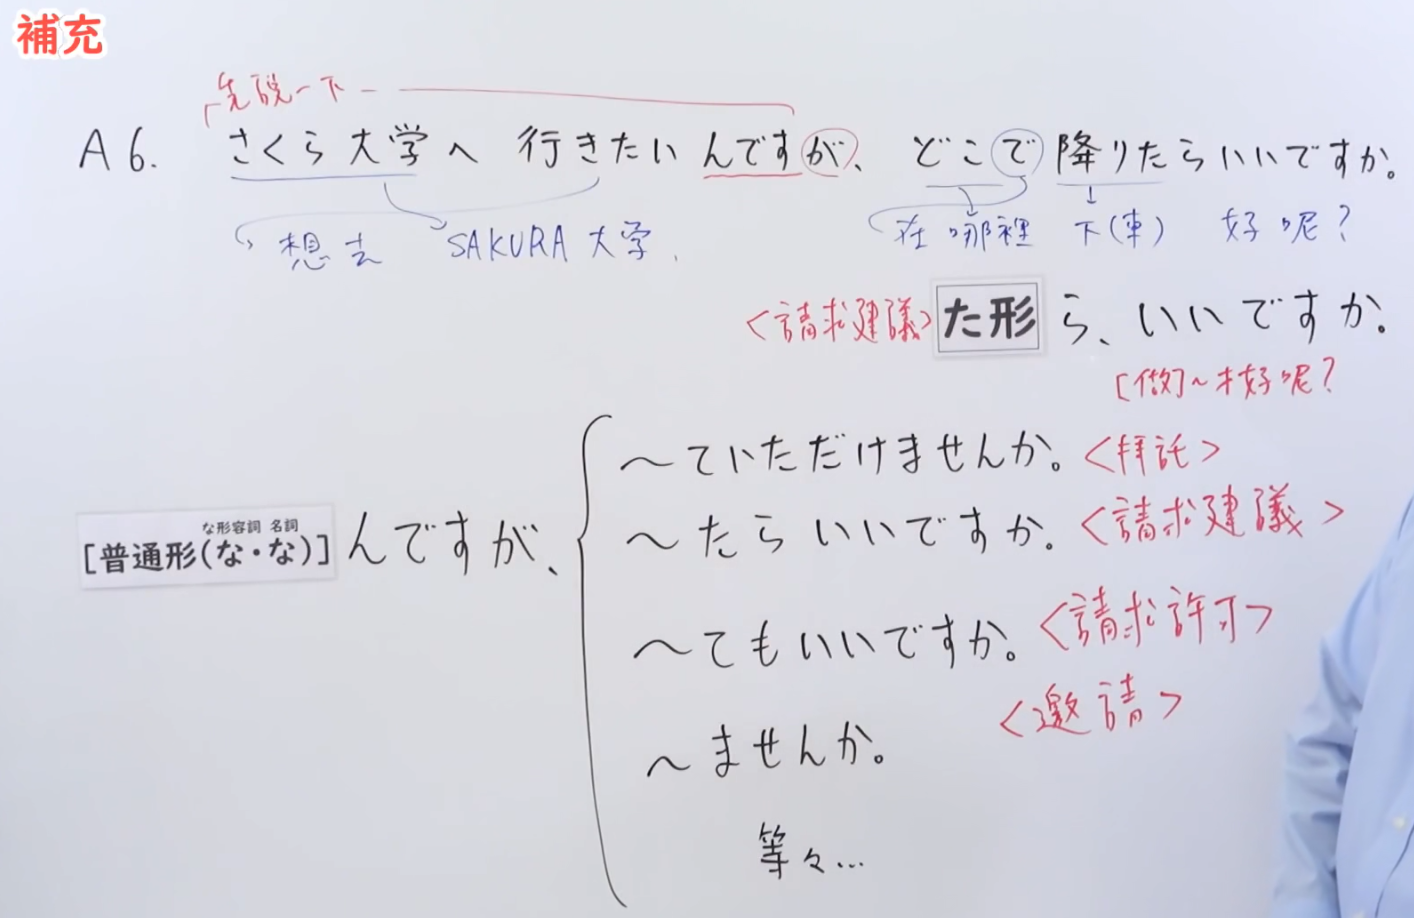 補充
先說一下
A6. さくら大学へ 行きたいんですが、どこで降りたらいいですか。
想去 SAKURA大学. 在哪裡 下(車) 好呢?
<請求建議> た形 ら、いいですか。
[做]～才好呢?
～ていただけませんか。<拜託>
な形容詞 名詞
[普通形(な・な)] んですが、
～たらいいですか。<請求建議>
～てもいいですか。<請求許可>
～ませんか。<邀請>
等々...